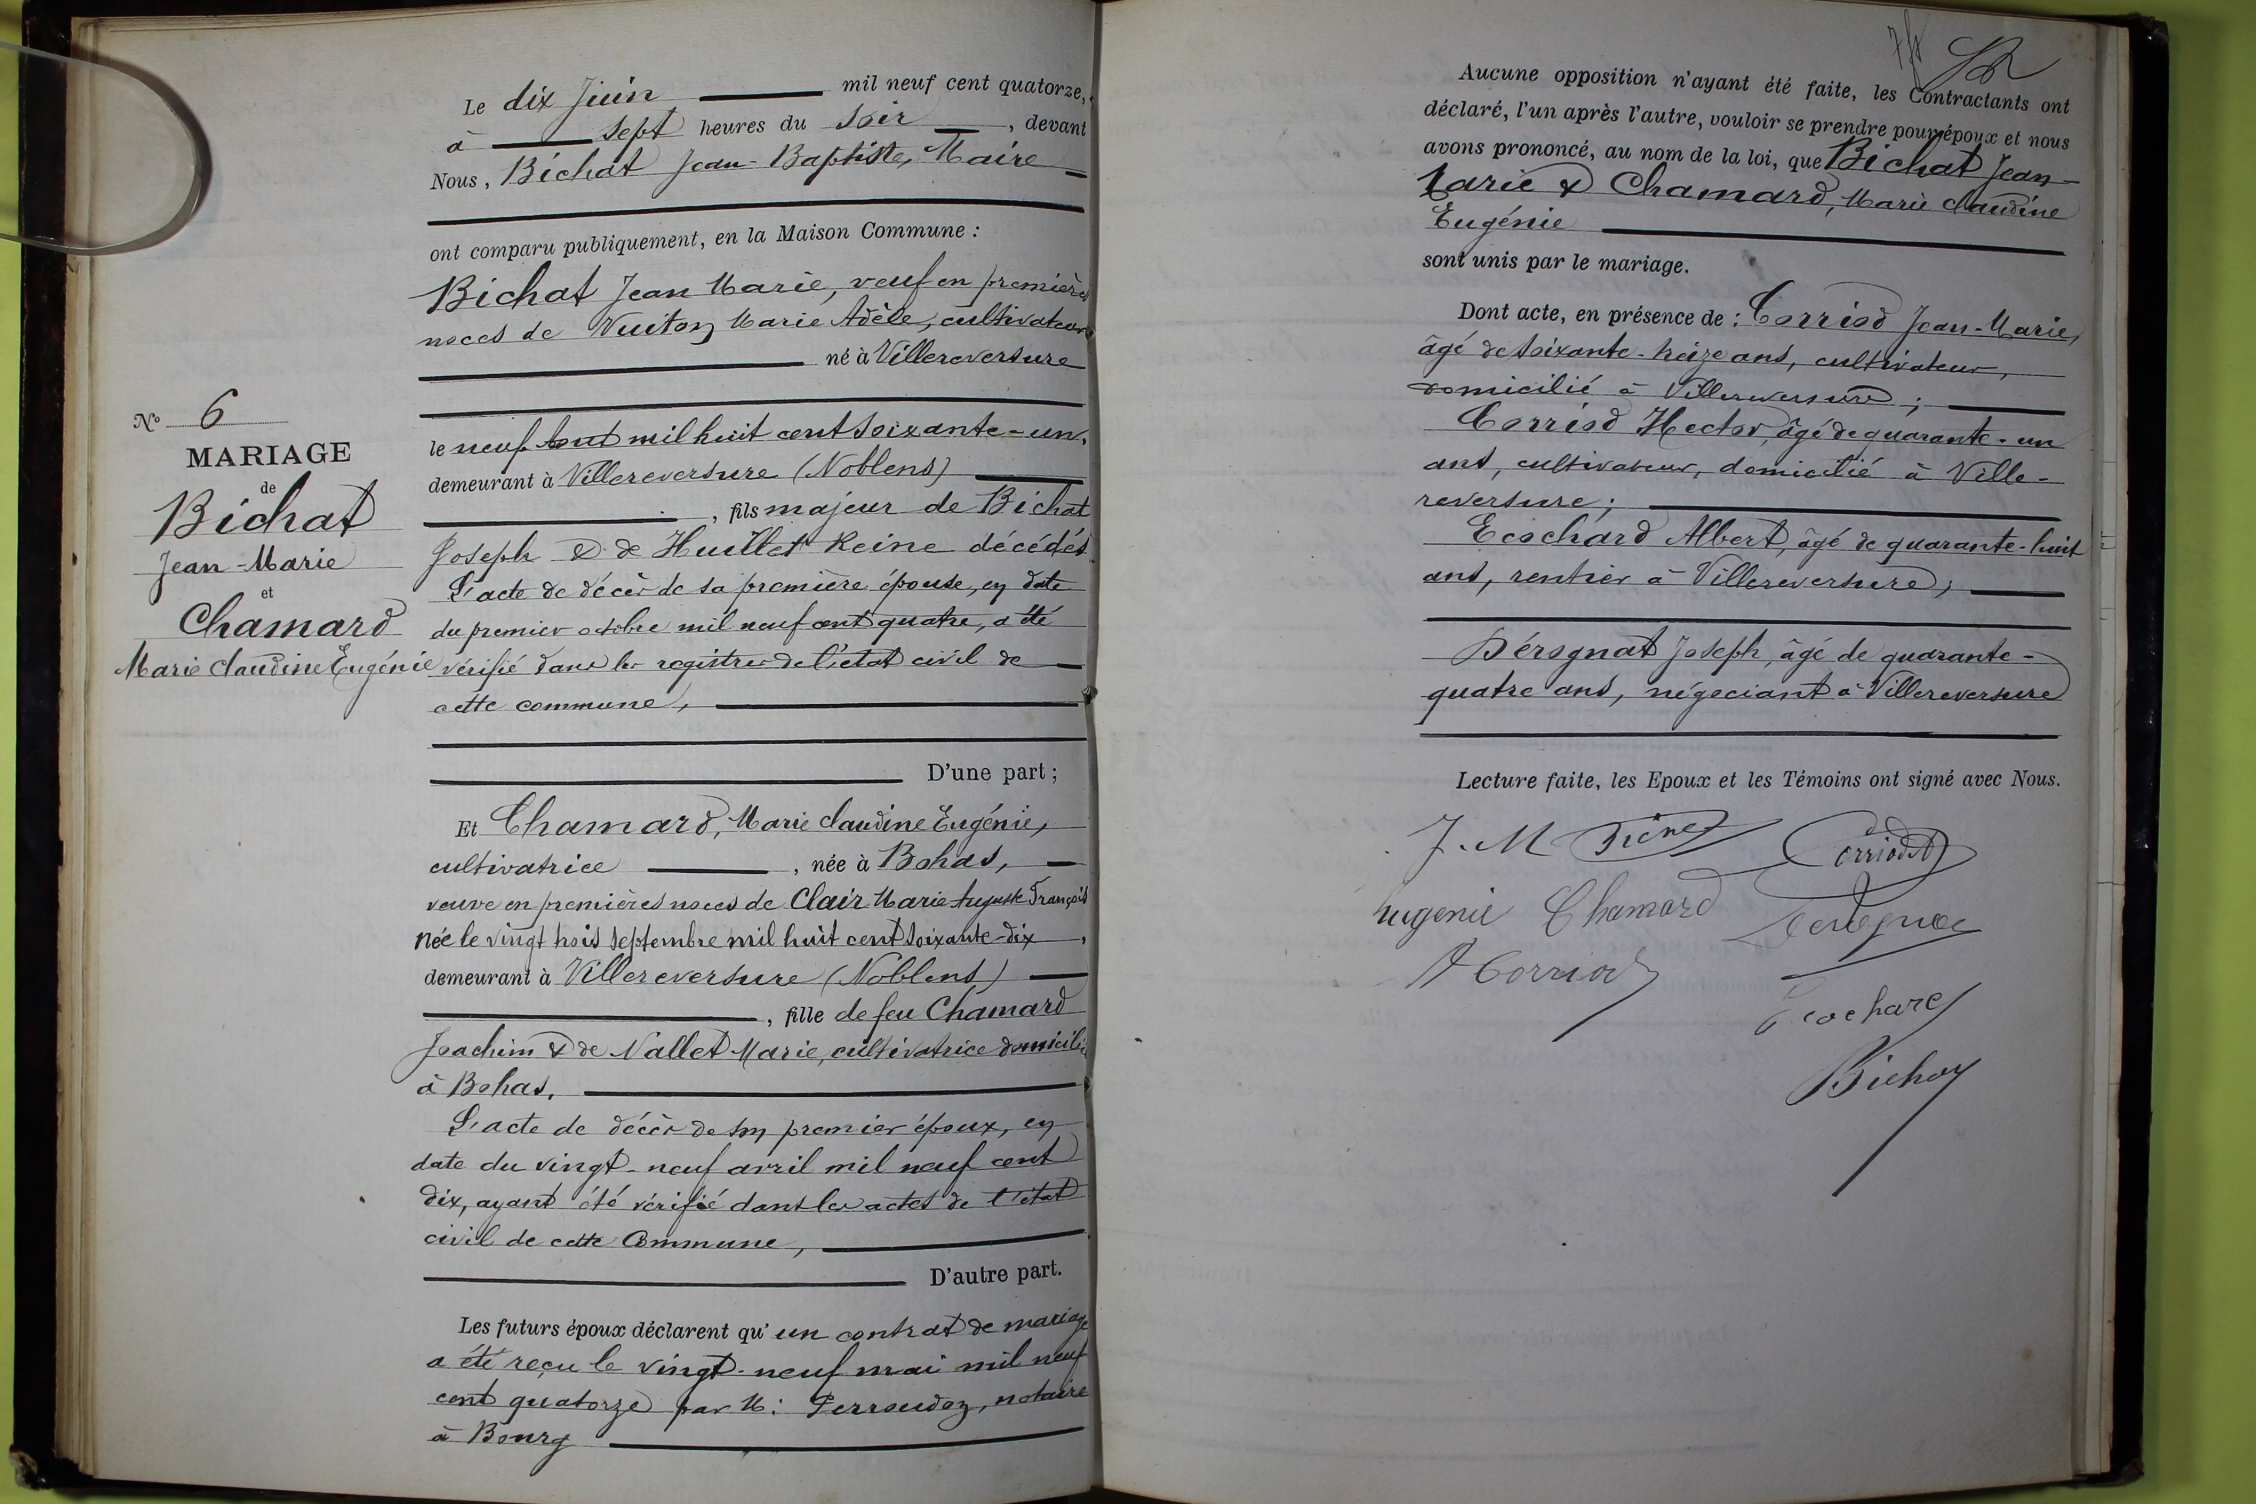 Le dix Juin mil neuf cent quatorze,
à sept heures du Soir, devant
Nous, Bichat Jean-Baptiste, Maire
ont comparu publiquement, en la Maison Commune :
Bichat Jean Marie, veuf en premières
noces de Vuiton Marie Adèle, cultivateur
né à Villereversure
le neuf Août mil huit cent soixante-un,
demeurant à Villereversure (Noblens)
, fils majeur de Bichat
Joseph & de Huillet Reine décédés.
L'acte de décès de sa première épouse, en date
du premier octobre mil neuf cent quatre, a été
vérifié dans les registres de l'état civil de
cette commune,
D'une part ;
Et Chamard, Marie Claudine Eugénie,
cultivatrice, née à Bohas,
veuve en premières noces de Clair Marie Auguste François
née le vingt trois Septembre mil huit cent soixante-dix,
demeurant à Villereversure (Noblens)
, fille de feu Chamard
Joachim & de Nallet Marie, cultivatrice domiciliée
à Bohas.
L'acte de décès de son premier époux, en
date du vingt-neuf avril mil neuf cent
dix, ayant été vérifié dans les actes de l'état
civil de cette Commune,
D'autre part.
Les futurs époux déclarent qu'un contrat de mariage
a été reçu le vingt-neuf mai mil neuf
cent quatorze par M: Perroudon, notaire
à Bourg
N° 6
MARIAGE
de
Bichat
Jean-Marie
et
Chamard
Marie Claudine Eugénie
Aucune opposition n'ayant été faite, les Contractants ont
déclaré, l'un après l'autre, vouloir se prendre pour époux et nous
avons prononcé, au nom de la loi, que Bichat Jean-
Marie & Chamard, Marie Claudine
Eugénie
sont unis par le mariage.
Dont acte, en présence de : Corriod Jean-Marie,
âgé de soixante-treize ans, cultivateur,
domicilié à Villereversure ;
Corriod Hector, âgé de quarante-un
ans, cultivateur, domicilié à Ville-
reversure ;
Ecochard Albert, âgé de quarante-huit
ans, rentier à Villereversure,
Dérognat Joseph, âgé de quarante-
quatre ans, négociant à Villereversure
Lecture faite, les Epoux et les Témoins ont signé avec Nous.
J. M
Corriod
Eugenie Chamard
Derognat
H Corriod
Ecochard
Bichat